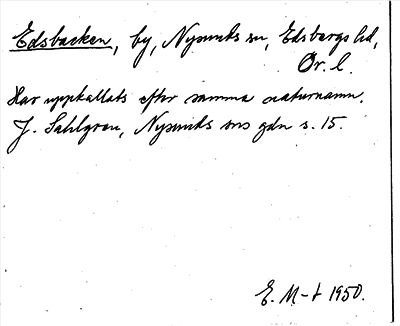 Edsbacken, by, Nysunds sn, Edsbergs hd,
Ör. l.
Har uppkallats efter samma naturnamn.
J. Sahlgren, Nysunds sns gdn s. 15.
E. M-t 1950.